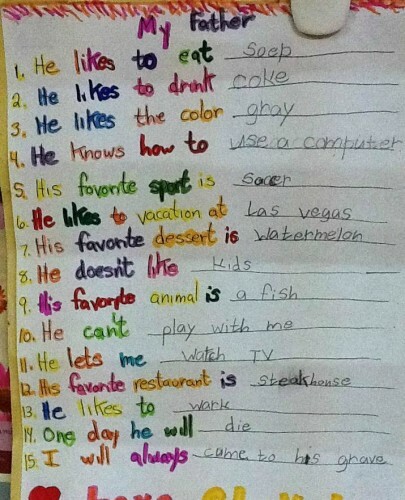 My father
1. He likes to eat Soep
2. He likes to drink coke
3. He likes the color gray
4. He knows how to use a computer
5. His favorite sport is Soccer
6. He likes to vacation at Las vegas
7. His favorite dessert is Watermelon
8. He doesn't like Kids
9. His favorite animal is a fish
10. He can't play with me
11. He lets me Watch TV
12. His favorite restaurant is Steakhouse
13. He likes to wark
14. One day he will die
15. I will always came to his grave